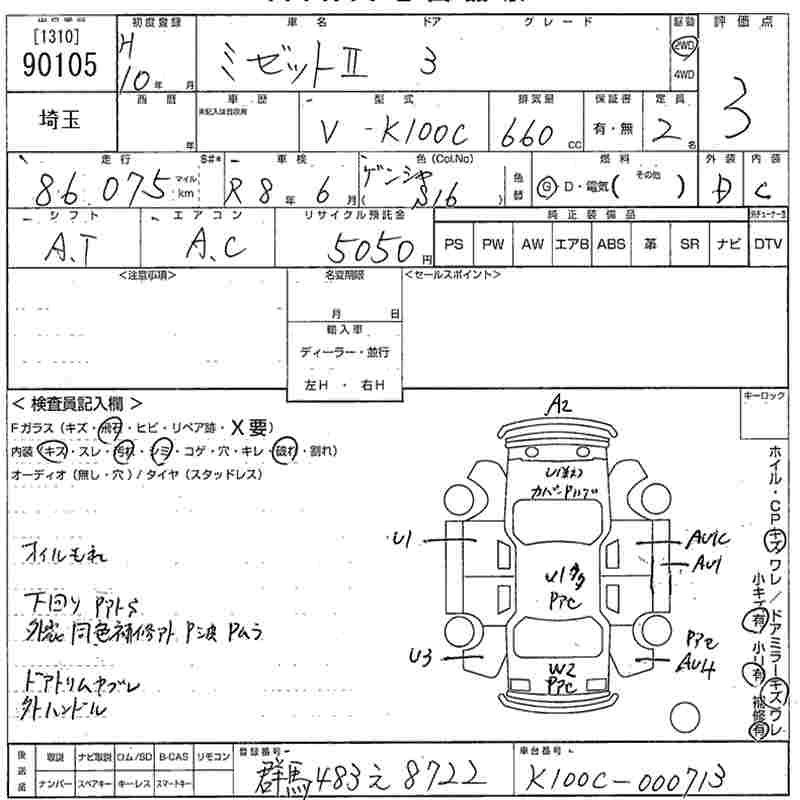 [1310]
90105
埼玉
初度登録
H
10年 月
車名 ドア グレード
ミゼットⅡ 3
駆動
2WD
4WD
評価点
3
西暦
年
車歴
未記入は自家用
型式
V-K100C
排気量
660 cc
保証書
有・無
定員
2名
走行
86,075 マイル km
S#*
車検
R8年 6月
色(Col.No)
ゲンシャ
( S16
色替
燃料
G・D・電気( その他 )
外装
D
内装
C
シフト
A.T
エアコン
A.C
リサイクル預託金
5050円
純正装備品
PS PW AW エアB ABS 革 SR ナビ DTV
<注意事項>
名変期限
月 日
輸入車
ディーラー・並行
左H ・ 右H
<セールスポイント>
< 検査員記入欄 >
Fガラス(キズ・飛石・ヒビ・リペア跡・X要)
内装(キズ・スレ・汚れ・シミ・コゲ・穴・キレ・破れ・割れ)
オーディオ(無し・穴)/タイヤ(スタッドレス)
キーロック
オイルもれ
下回り PアトS
外装同色補修アト P波 Pムラ
ドアトリムヤブレ
外ハンドル
A2
カバーP
U1
AU1C
AU1
U1
PアC
U3
AU4
W2
PアC
ホイル・CPキズ ワレ/ドアミラーキズ ワレ
小キズ有 小凹有 補修有
後送品
取説 ナビ取説 ロム/SD B-CAS リモコン
ナンバー スペアキー キーレス スマートキー
登録番号
群馬 483 え 8722
車台番号
K100C-000713